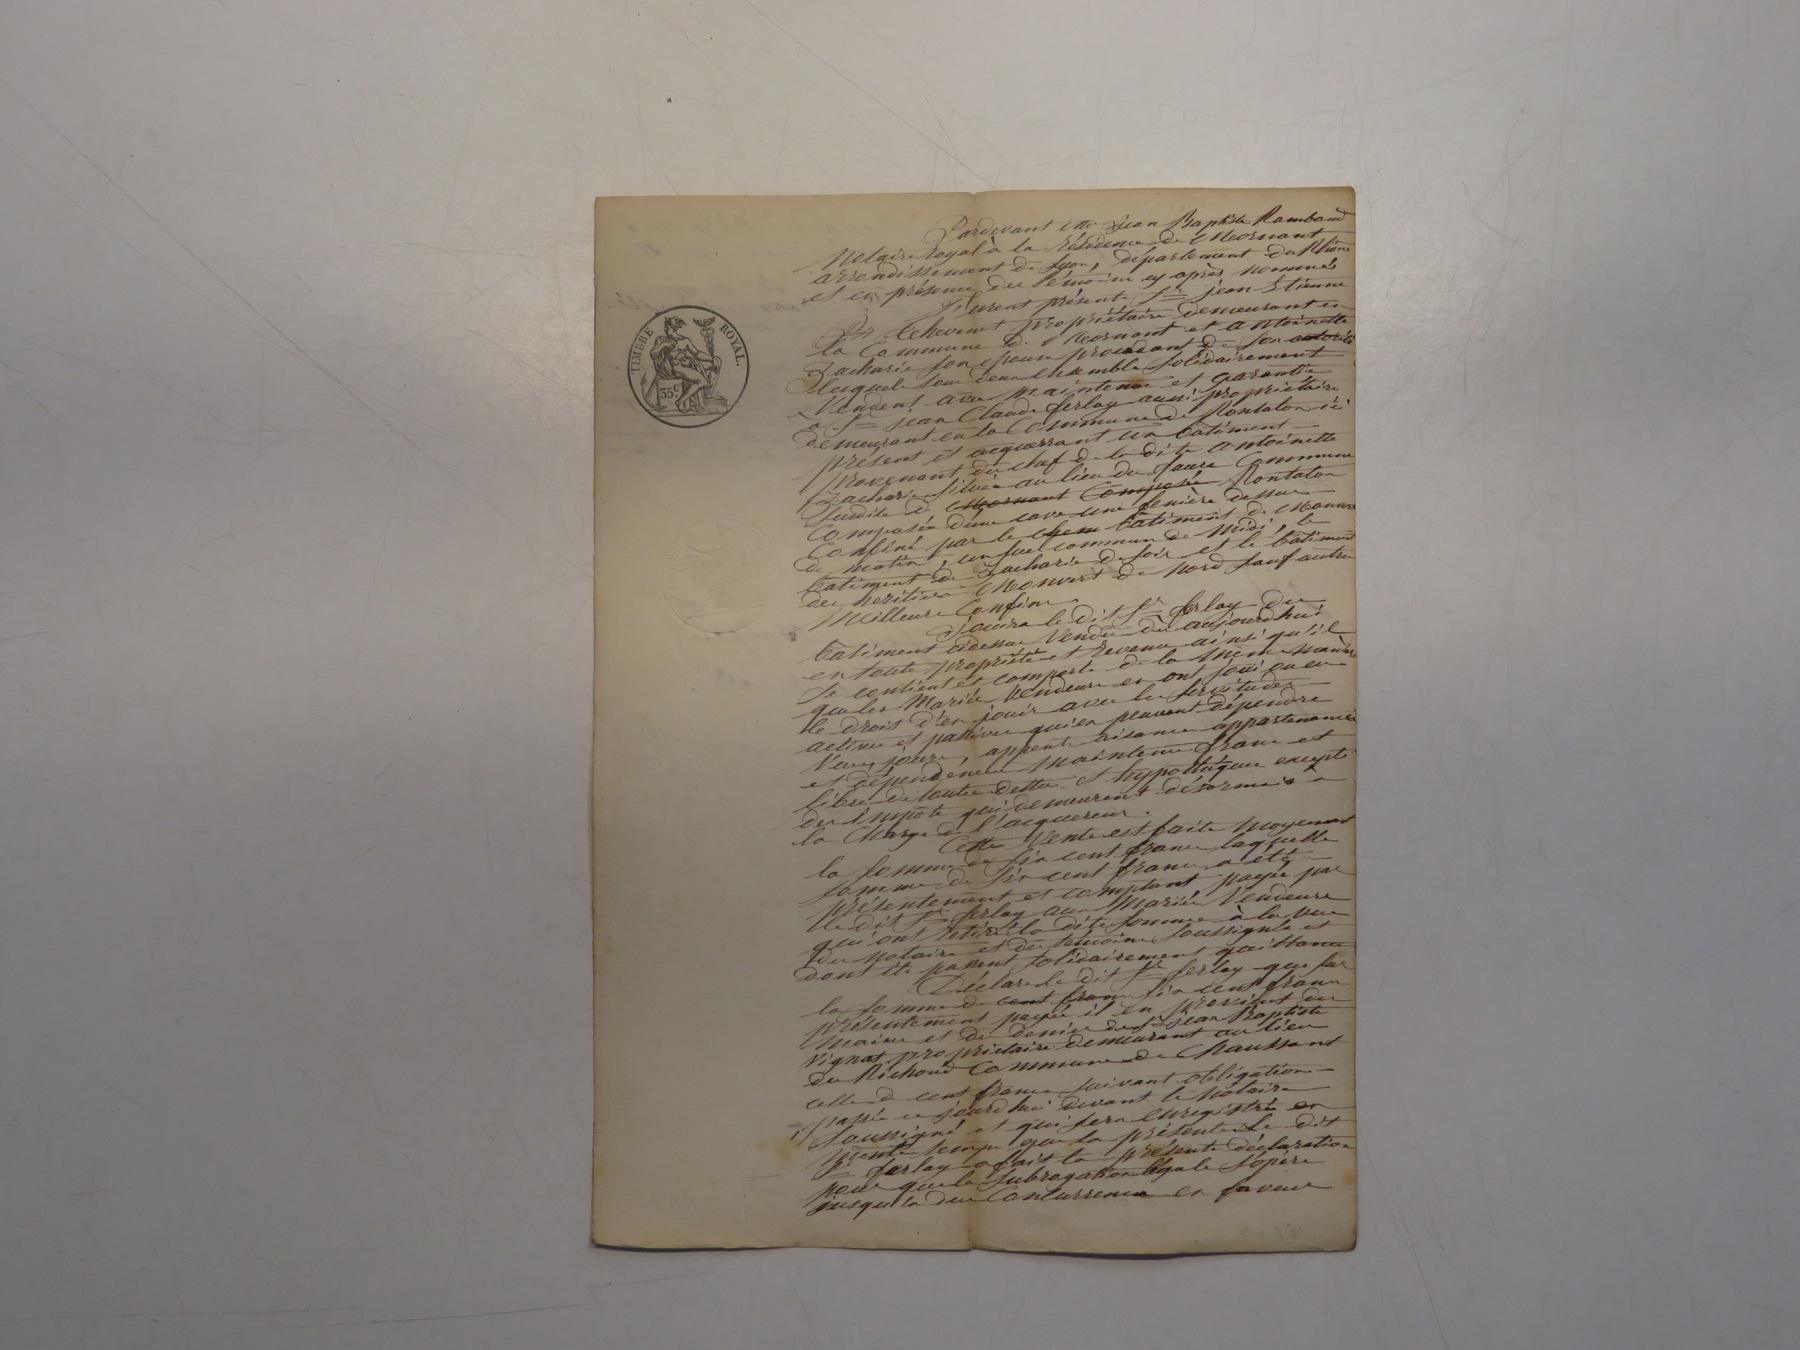 TIMBRE ROYAL.
35c
Pardevant Me Jean Baptiste Rambaud
Notaire royal à la résidence de Mornant
arrondissement de Lyon, département du Rhône
et en présence des témoins cy après nommés
Furent présents Sr jean Etienne
Thevenet propriétaire demeurant en
la Commune de Mornant et antoinette
Zacharie son epouse procédant de son autorité
lesquels tous deux ensemble solidairement
Vendent avec maintenue et garantie
a Sr jean Claude ferlay aussi propriétaire
demeurant en la Commune de Rontalon ici
présent et acquerrant un batiment
provenant du chef de la dite antoinette
Zacharie située au lieu du faure Commune
susdite de Mornant Composée Rontalon
Composée d'une cave une fenière dessus
Confiné par le chem batiment de
de matin, un suel commun de midi, le
batiment de Zacharie de soir et le batiment
des heritiers Monvert de nord sauf autres
Meilleurs Confins.
Jouira le dit Sr ferlay du
batiment cidessus Vendu dès aujourdhui
en toute propriété et revenu ainsi qu'il
se contient et comporte de la même manière
que les Mariés Vendeurs en ont joui ou eu
le droit d'en jouir avec les servitudes
actives et passives qui en peuvent dépendre
Vues, jours, aisances appartenances
et dépendances maintenu franc et
libre de toutes dettes et hypothèques excepté
des impôts qui demeurent désormais à
la Charge de l'acquereur.
Cette Vente est faite moyennant
la somme de six cent francs laquelle
somme de six cent francs a été
présentement et comptant payée par
le dit Sr ferlay aux Mariés Vendeurs
qui ont retiré la dite somme à la vue
du notaire et des témoins soussignés et
dont ils passent solidairement quittance
Déclare le dit Sr ferlay que sur
la somme de cent francs six cent francs
présentement payée il en provient des
mains et des deniers du Sr jean Baptiste
Vignat propriétaire demeurant au lieu
du Richoud Commune de Chaussant
celle de cent francs suivant obligation
passée ce jourdhui devant le notaire
soussigné et qui sera enregistrée en
même temps que la présente le dit
Sr ferlay a fait la présente déclaration
pour que la subrogation légale s'opère
jusqu'a due Concurrence en faveur